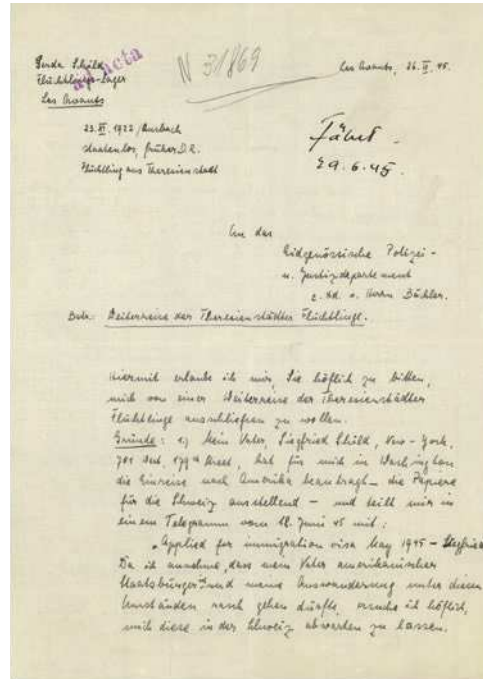 Gerda Schild
Flüchtlings-Lager
Les Avants
ad acta
N 31869
Les Avants, 26. VI. 45.
23. XI. 1922 / Aurbach
staatenlos, früher D.R.
Flüchtling aus Theresienstadt
29.6.45.
An das
Eidgenössische Polizei-
u. Justizdepartement
z. Hd. v. Herrn Büchler.
Betr.: Weiterreise der Theresienstädter Flüchtlinge.
Hiermit erlaube ich mir, Sie höflich zu bitten,
mich von einer Weiterreise der Theresienstädter
Flüchtlinge ausschliefsen zu wollen.
Gründe: 1.) Mein Vater, Siegfried Schild, New-York,
701 West, 179th Street, hat für mich in Washington
die Einreise nach Amerika beantragt – die Papiere
für die Schweiz ausstellend – und teilt mir in
einem Telegramm vom 18. Juni 45 mit:
„Applied for immigration visa May 1945 – Siegfried
Da ich annehme, dass mein Vater amerikanischer
Staatsbürger und meine Auswanderung unter diesen
Umständen rasch gehen dürfte, ersuche ich höflich,
mich diese in der Schweiz abwarten zu lassen.